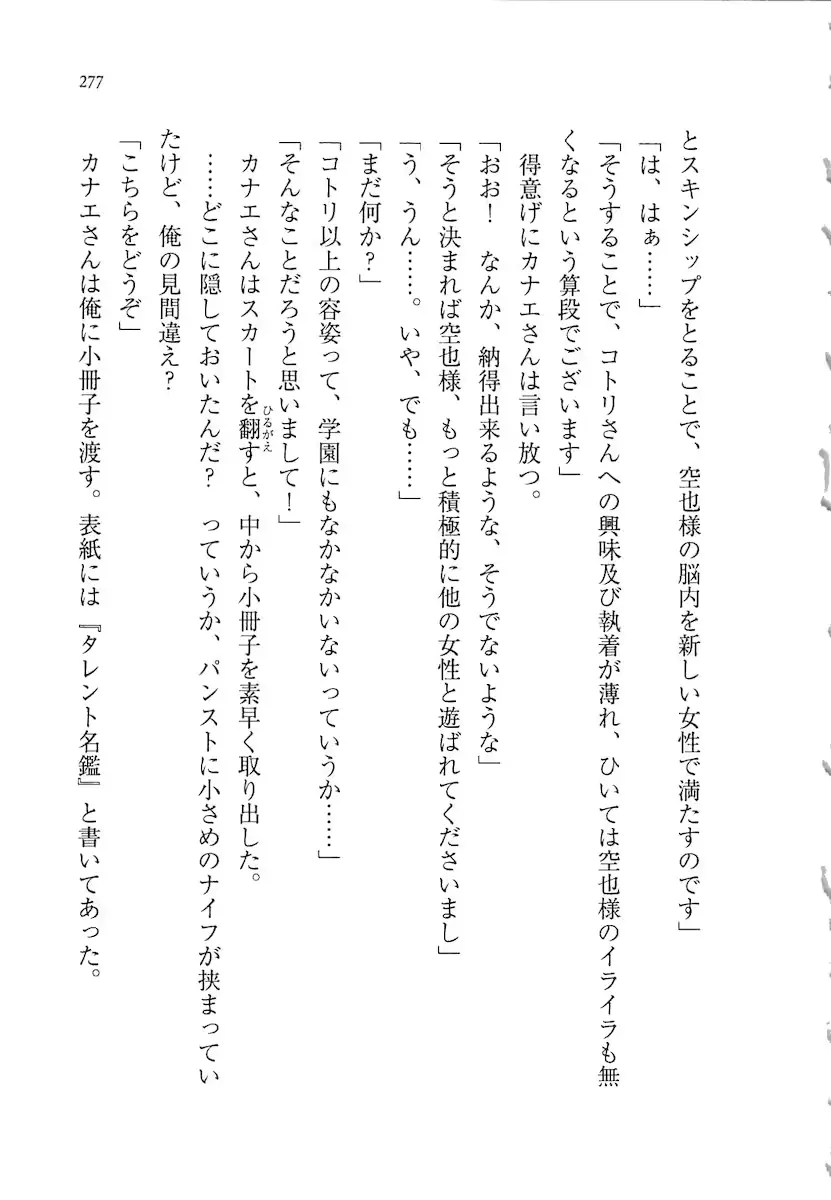 277
とスキンシップをとることで、空也様の脳内を新しい女性で満たすのです」
「は、はぁ……」
「そうすることで、コトリさんへの興味及び執着が薄れ、ひいては空也様のイライラも無
くなるという算段でございます」
得意げにカナエさんは言い放つ。
「おお！　なんか、納得出来るような、そうでないような」
「そうと決まれば空也様、もっと積極的に他の女性と遊ばれてくださいまし」
「う、うん……。いや、でも……」
「まだ何か？」
「コトリ以上の容姿って、学園にもなかなかいないっていうか……」
「そんなことだろうと思いまして！」
カナエさんはスカートを翻すと、中から小冊子を素早く取り出した。
ひるがえ
……どこに隠しておいたんだ？　っていうか、パンストに小さめのナイフが挟まってい
たけど、俺の見間違え？
「こちらをどうぞ」
カナエさんは俺に小冊子を渡す。表紙には『タレント名鑑』と書いてあった。